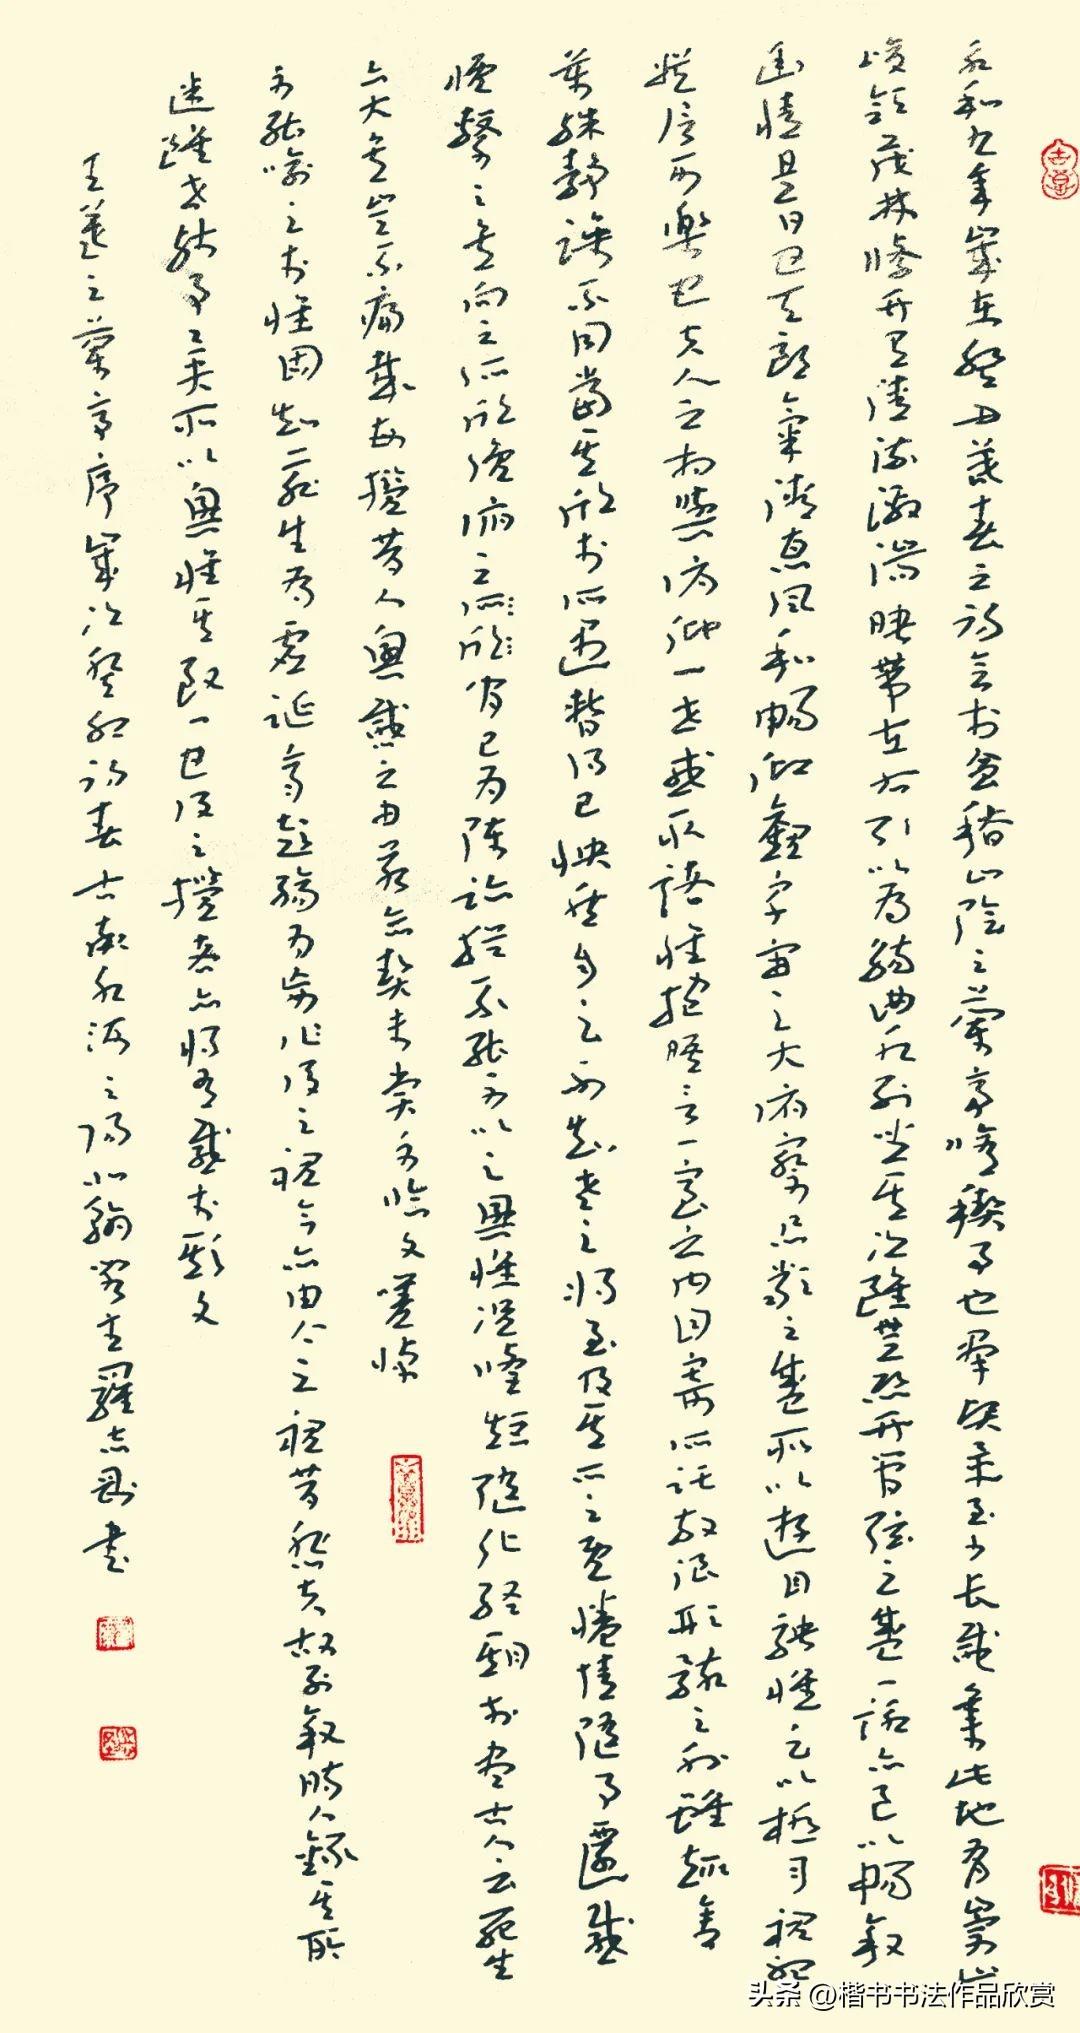 永和九年歲在癸丑暮春之初會于會稽山陰之蘭亭脩稧事也群賢畢至少長咸集此地有崇山
峻領茂林脩竹有清流激湍映帶左右引以為觴曲水列坐其次雖無絲竹管弦之盛一詠亦足以暢敘
幽情是日也天朗氣清惠風和暢仰觀宇宙之大俯察品類之盛所以遊目騁懷足以極視聽
娛信可樂也夫人之相與俯仰一世或取諸懷抱悟言一室之內因寄所託放浪形骸之外雖趣舍
萬殊靜躁不同當其欣於所遇暫得已怏然自足不知老之將至及其所之既惓情隨事遷感
慨繫之矣向之所欣俛俯之所欣皆已為陳迹猶不能不以之興懷況脩短隨化終期於盡古人云死生
亦大矣豈不痛哉每攬昔人興感之由若合契未嘗不臨文嗟悼
不能喻之於懷固知一死生為虛誕齊彭殤為妄作後之視今亦由今之視昔悲夫故列敘時人錄其所
述雖世殊事異所以興懷其致一也後之攬者亦將有感於斯文
王羲之蘭亭序歲次癸卯初春古之陽主羅志剛書
头条 @楷书书法作品欣赏